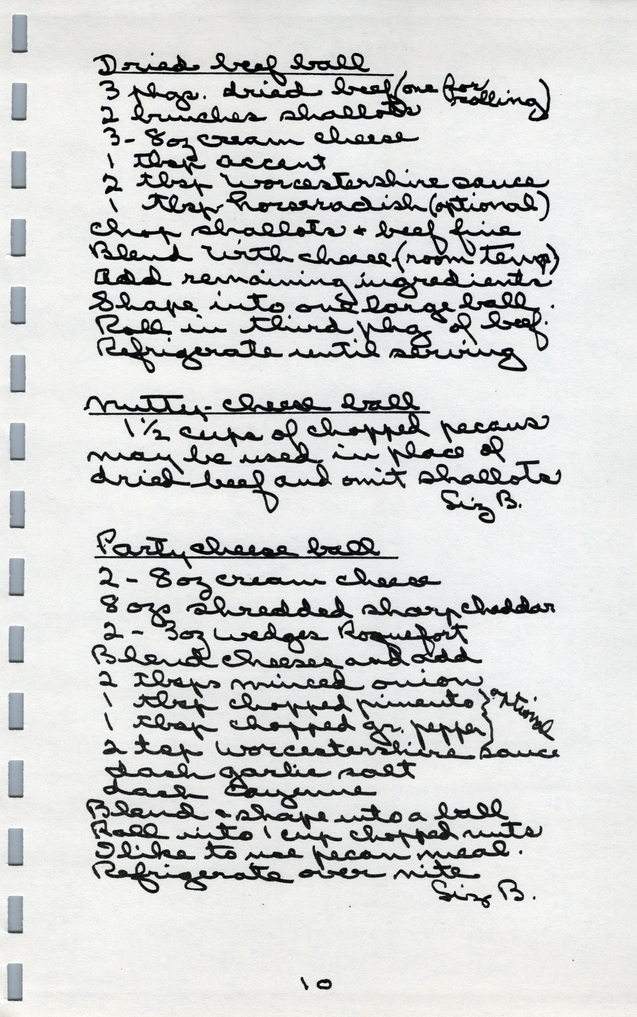 Dried beef ball
3 phgs. dried beef (one for rolling)
2 bunches shallots
3 - 8oz cream cheese
1 tbsp accent
2 tbsp Worcestershire sauce
1 tbsp horseradish (optional)
Chop shallots + beef fine
Blend with cheese (room temp)
Add remaining ingredients
Shape into one large ball.
Roll in third phg of beef.
Refrigerate until serving
Nutty-cheese ball
1 1/2 cups of chopped pecans
may be used in place of
dried beef and omit shallots
Liz B.
Party cheese ball
2 - 8oz cream cheese
8 ozs shredded sharp cheddar
2 - 3oz wedges Roquefort
Blend cheeses and add
2 tbsps minced onion
1 tbsp chopped pimento
1 tbsp chopped gr. pepper } optional
2 tsp Worcestershire sauce
dash garlic salt
dash Cayenne
Blend + shape into a ball
Roll into 1 cup chopped nuts
I like to use pecan meal.
Refrigerate over nite
Liz B.
10